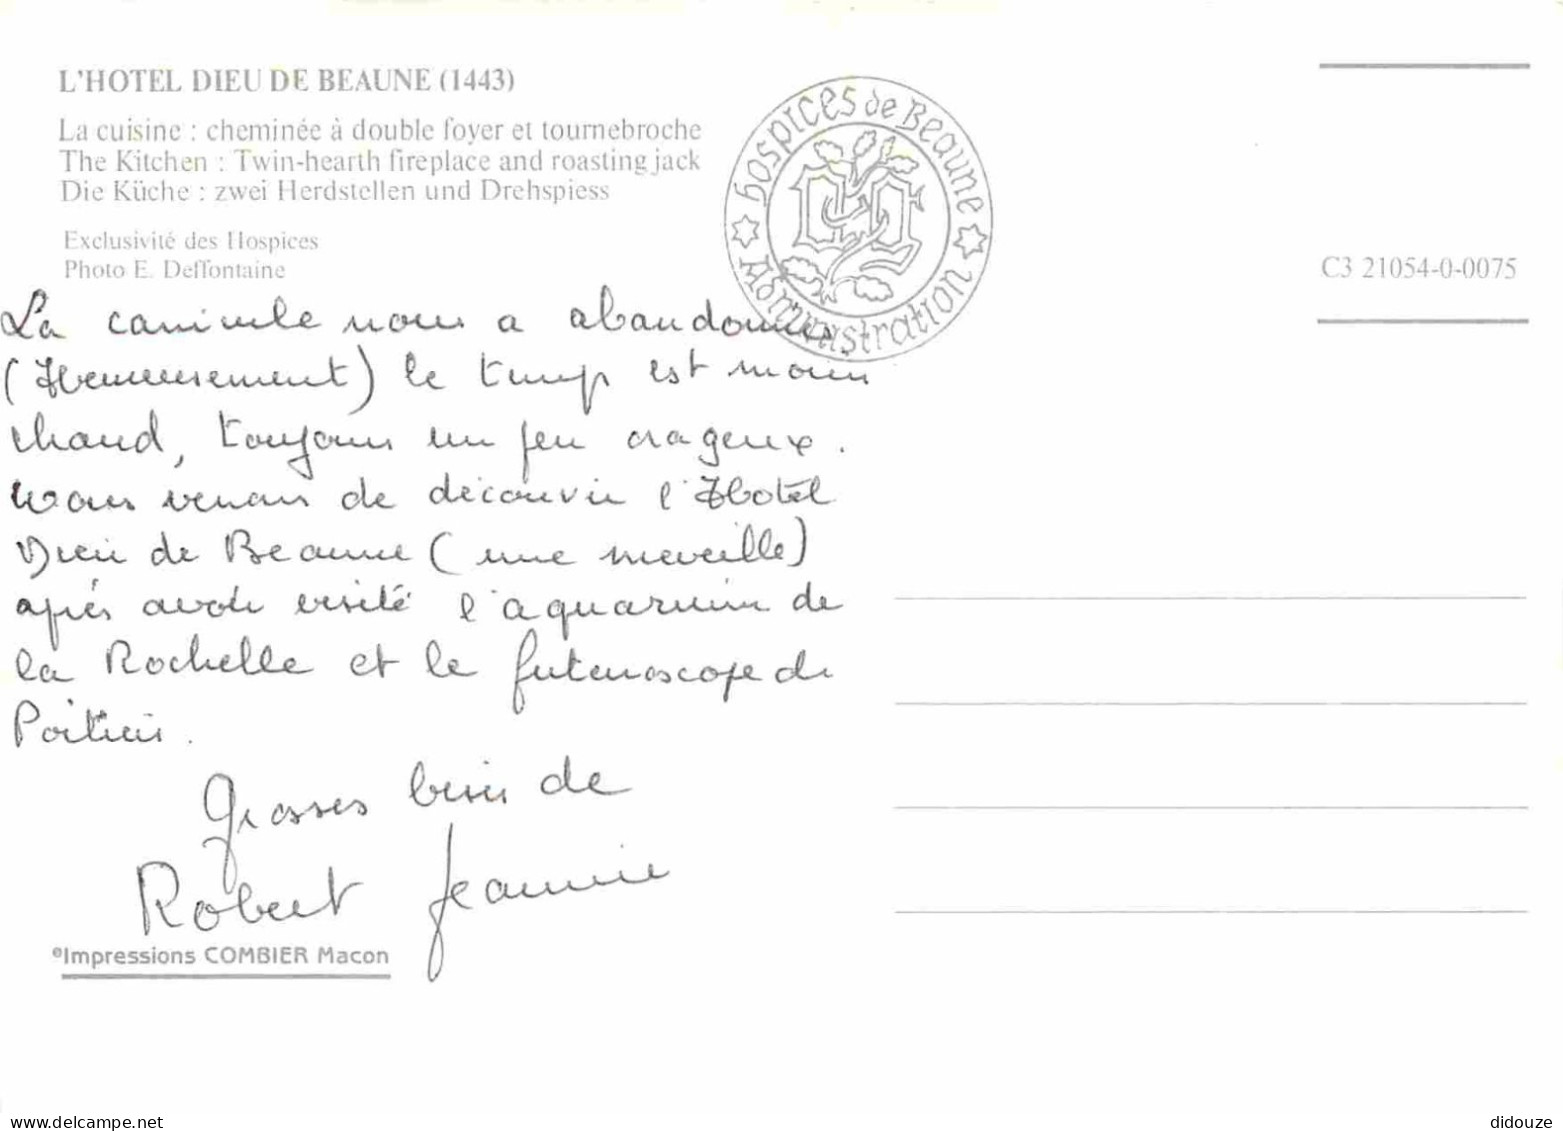 L'HOTEL DIEU DE BEAUNE (1443)
La cuisine : cheminée à double foyer et tournebroche
The Kitchen : Twin-hearth fireplace and roasting jack
Die Küche : zwei Herdstellen und Drehspiess
Exclusivité des Hospices
Photo E. Deffontaine
hospices de Beaune
Administration
C3 21054-0-0075
La canicule nous a abandonnés
(Heureusement) le temps est moins
chaud, toujours un peu orageux.
Nous venons de découvrir l'Hotel
Dieu de Beaune (une merveille)
après avoir visité l'aquarium de
la Rochelle et le futuroscope de
Poitiers.
Grosses bises de
Robert Jeannine
©Impressions COMBIER Macon
www.delcampe.net
didouze